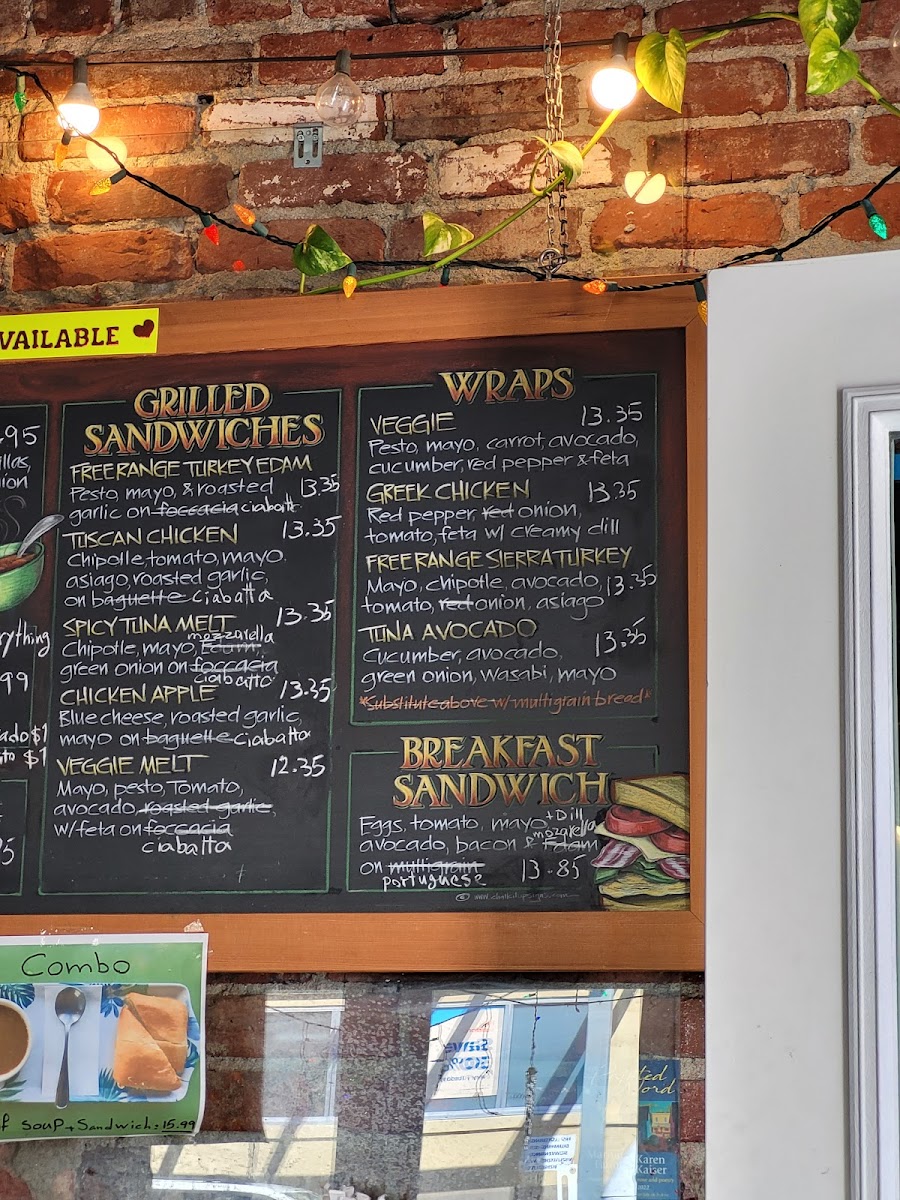 VAILABLE
.95
illas,
nion
rything
99
ado $1
to $1
GRILLED
SANDWICHES
FREE RANGE TURKEY EDAM
Pesto, mayo, & roasted 13.35
garlic on foccacia ciabatta
TUSCAN CHICKEN 13.35
Chipotle, tomato, mayo,
asiago, roasted garlic,
on baguette ciabatta
SPICY TUNA MELT 13.35
mozzarella
Chipotle, mayo, Edam,
green onion on foccacia
ciabatta
CHICKEN APPLE 13.35
Blue cheese, roasted garlic,
mayo on baguette ciabatta
VEGGIE MELT 12.35
Mayo, pesto, Tomato,
avocado, roasted garlic,
w/feta on foccacia
ciabatta
WRAPS
VEGGIE 13.35
Pesto, mayo, carrot, avocado,
cucumber, red pepper & feta
GREEK CHICKEN 13.35
Red pepper, red onion,
tomato, feta w/ creamy dill
FREE RANGE SIERRA TURKEY
Mayo, chipotle, avocado, 13.35
tomato, red onion, asiago
TUNA AVOCADO 13.35
Cucumber, avocado,
green onion, wasabi, mayo
*Substitute above w/ multigrain bread*
BREAKFAST
SANDWICH
Eggs, tomato, mayo + Dill
mozarella
avocado, bacon & Edam
on multigrain 13.85
portuguese
Combo
f soup + Sandwich = 15.99
Karen
Kaiser